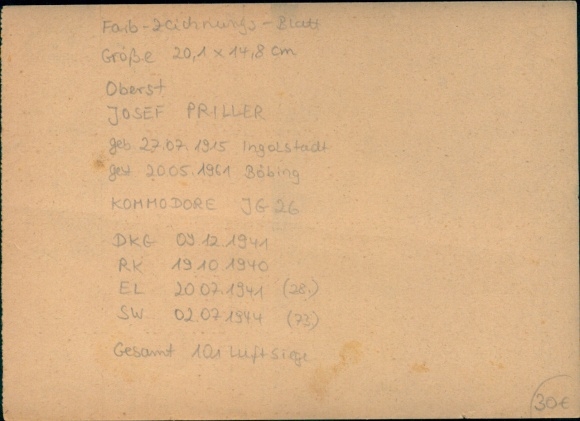 Farb-Zeichnungs-Blatt
Größe 20,1 x 14,8 cm
Oberst
JOSEF PRILLER
geb 27.07.1915 Ingolstadt
gest 20.05.1961 Böbing
KOMMODORE JG 26
DKG 09 12 1941
RK 19 10 1940
EL 20 07 1941 (28.)
SW 02.07 1944 (73.)
Gesamt 101 Luftsiege
30€